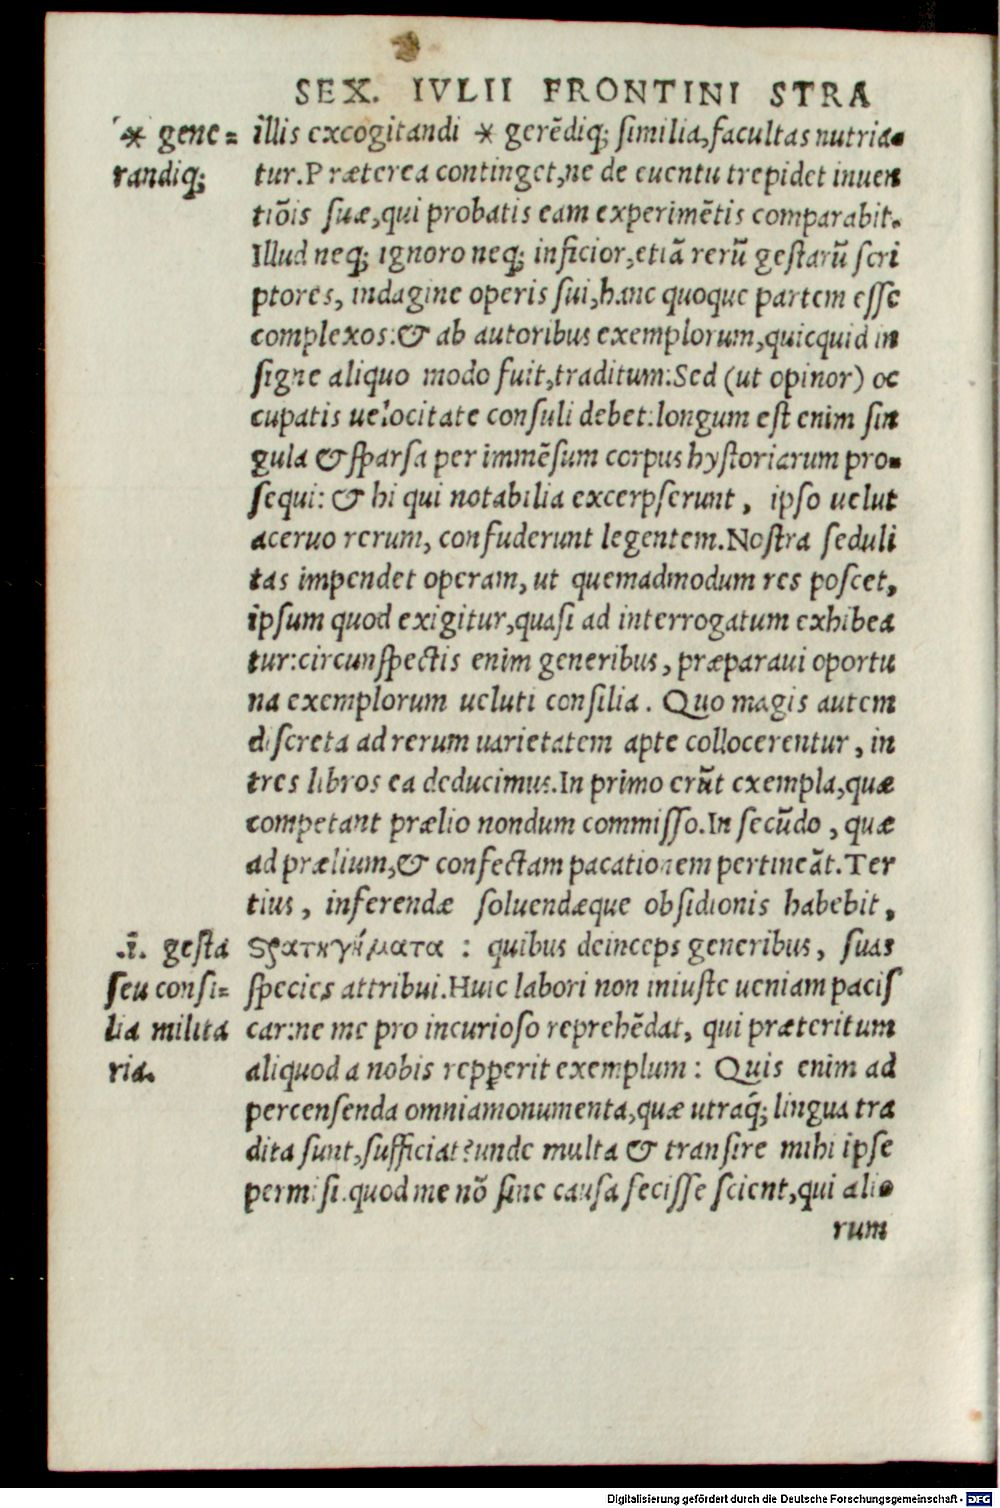 SEX. IVLII FRONTINI STRA
* gene=
randiq;
illis excogitandi * gerēdiq; ſimilia,facultas nutria-
tur.Præterea continget,ne de euentu trepidet inuen
tiōis ſuæ,qui probatis eam experimētis comparabit.
Illud neq; ignoro neq; inficior,etiā rerū geſtarū ſcri
ptores, indagine operis ſui,hanc quoque partem eſſe
complexos:& ab autoribus exemplorum,quicquid in
ſigne aliquo modo fuit,traditum:Sed (ut opinor) oc
cupatis uelocitate conſuli debet:longum eſt enim ſin
gula & ſparſa per immēſum corpus hyſtoriarum pro-
ſequi: & hi qui notabilia excerpſerunt, ipſo uelut
aceruo rerum, confuderunt legentem.Noſtra ſeduli
tas impendet operam, ut quemadmodum res poſcet,
ipſum quod exigitur,quaſi ad interrogatum exhibea
tur:circunſpectis enim generibus, præparaui oportu
na exemplorum ueluti conſilia. Quo magis autem
diſcreta ad rerum uarietatem apte collocerentur, in
tres libros ea deducimus.In primo erūt exempla,quæ
competant prælio nondum commiſſo.In ſecūdo, quæ
ad prælium,& confectam pacationem pertineāt.Ter
tius, inferendæ ſoluendæque obſidionis habebit,
.i. geſta
ſeu conſi=
lia milita
ria.
ϛρατηγήματα : quibus deinceps generibus, ſuas
ſpecies attribui.Huic labori non iniuſte ueniam paciſ
car:ne me pro incurioſo reprehēdat, qui præteritum
aliquod a nobis repperit exemplum: Quis enim ad
percenſenda omnia monumenta,quæ utraq̄; lingua tra
dita ſunt,ſufficiat?unde multa & tranſire mihi ipſe
permiſi.quod me nō ſine cauſa feciſſe ſcient,qui alio
rum
Digitalisierung gefördert durch die Deutsche Forschungsgemeinschaft - DFG